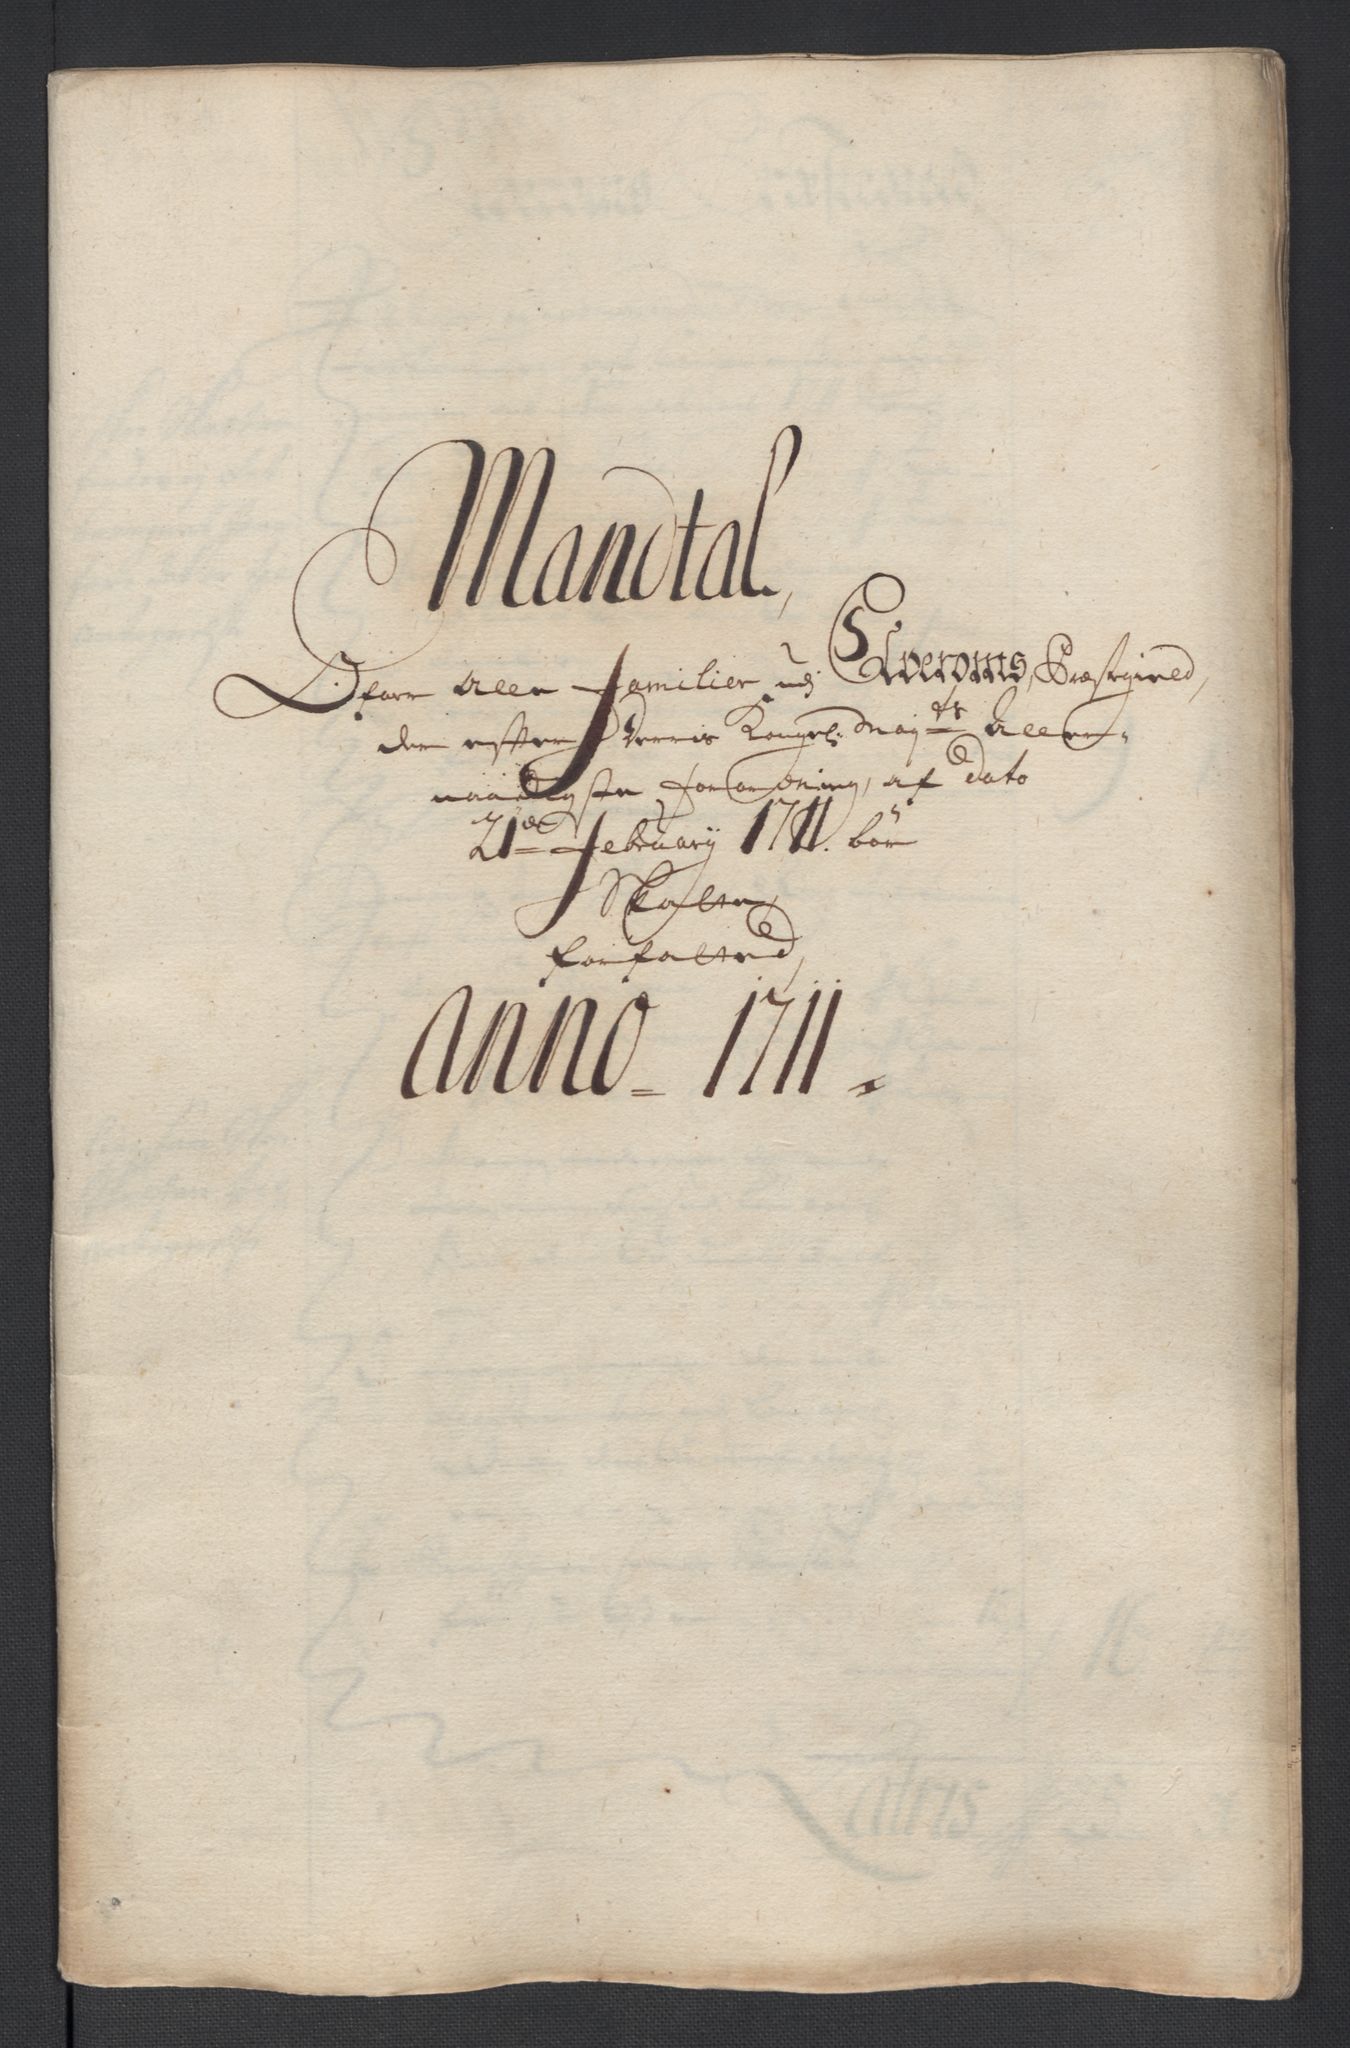 Mandtal,
Ofver Alle Familier udj Elveroms, Præstegield,
der efter Derris Kongel: May:ts Aller-
naadigste forordning, af dato
21de February 1711. bør
Skatte,
forfatted,
Anno = 1711.